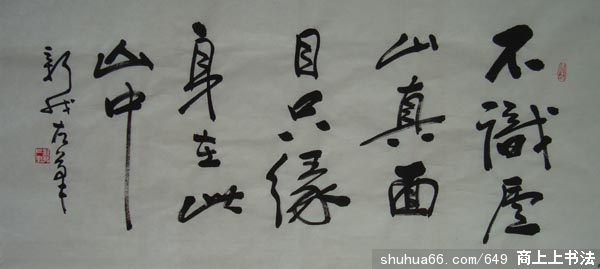 不識廬
山真面
目只緣
身在此
山中
新我左筆
shuhua66.com/649 商上上书法